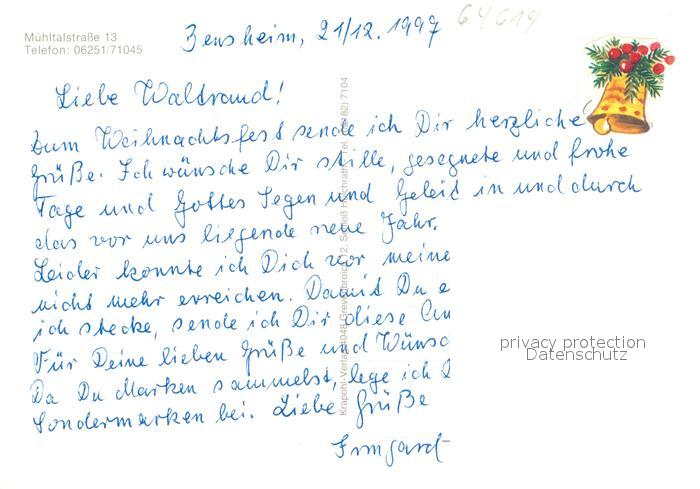 Mühltalstraße 13
Telefon: 06251/71045
Bensheim, 21/12. 1997
64614
Liebe Waltraud!
Zum Weihnachtsfest sende ich Dir herzliche
Grüße. Ich wünsche Dir stille, gesegnete und frohe
Tage und Gottes Segen und Geleit in und durch
das vor uns liegende neue Jahr.
Leider konnte ich Dich vor meine
nicht mehr erreichen. Damit Du
ich stecke, sende ich Dir diese
Für Deine lieben Grüße und Wünsc
Da Du Marken sammelst, lege ich
Sondermarken bei. Liebe Grüße
Irmgard
privacy protection
Datenschutz